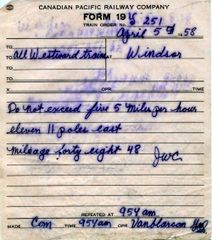 CANADIAN PACIFIC RAILWAY COMPANY
FORM 19
TRAIN ORDER No. S 251
April 5th 58
TO All Westward trains AT Windsor
TO AT
TO
TO
Do not exceed five 5 Miles per hour
eleven 11 poles east
mileage forty eight 48.
JWC
REPEATED AT 954am
MADE Com TIME 954am OPR Vanblarcon
MADE TIME OPR